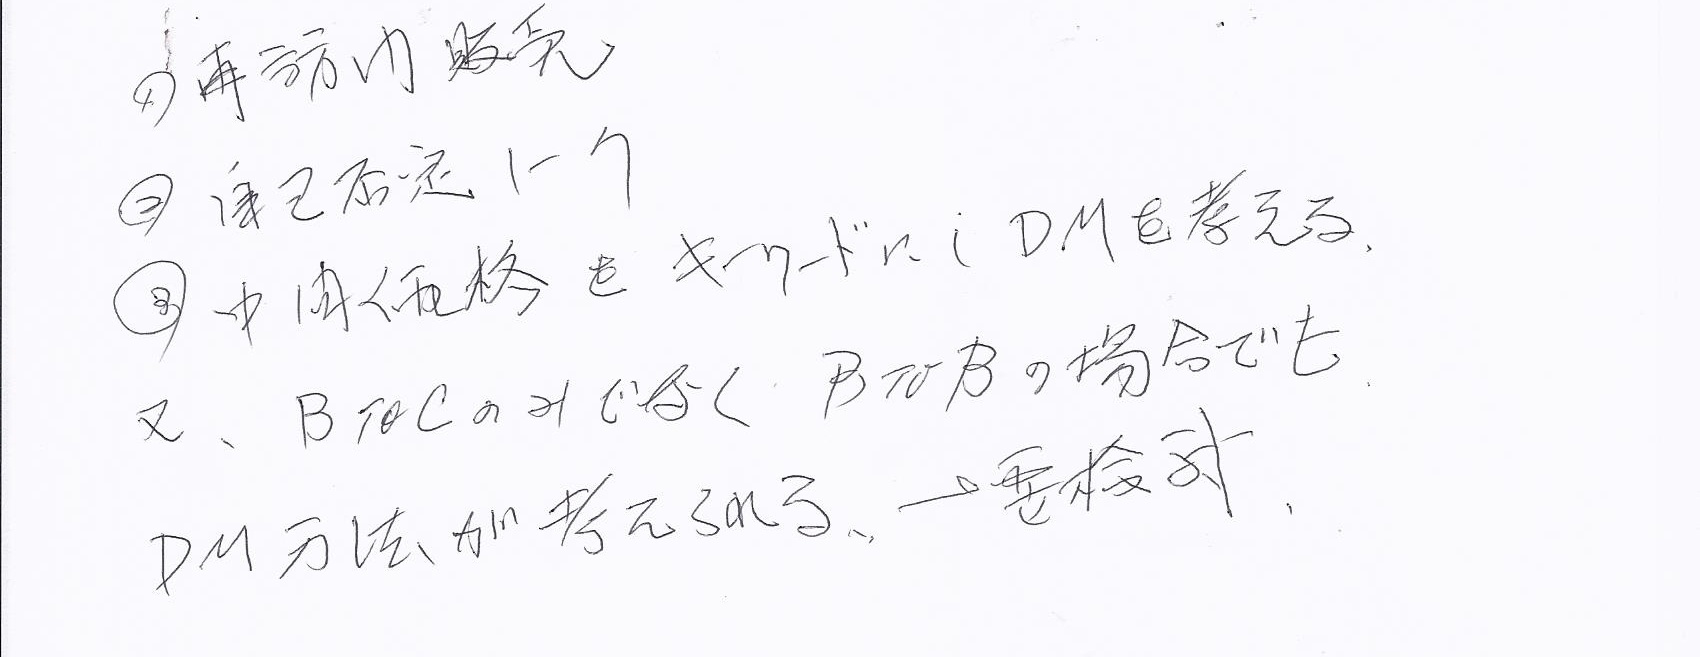 ① 再訪問販売
② 自己否定トーク
③ 中間価格をキーワードにし DMを考える、
又、BToCのみでなく BToBの場合でも
DM方法が考えられる、→要検討、